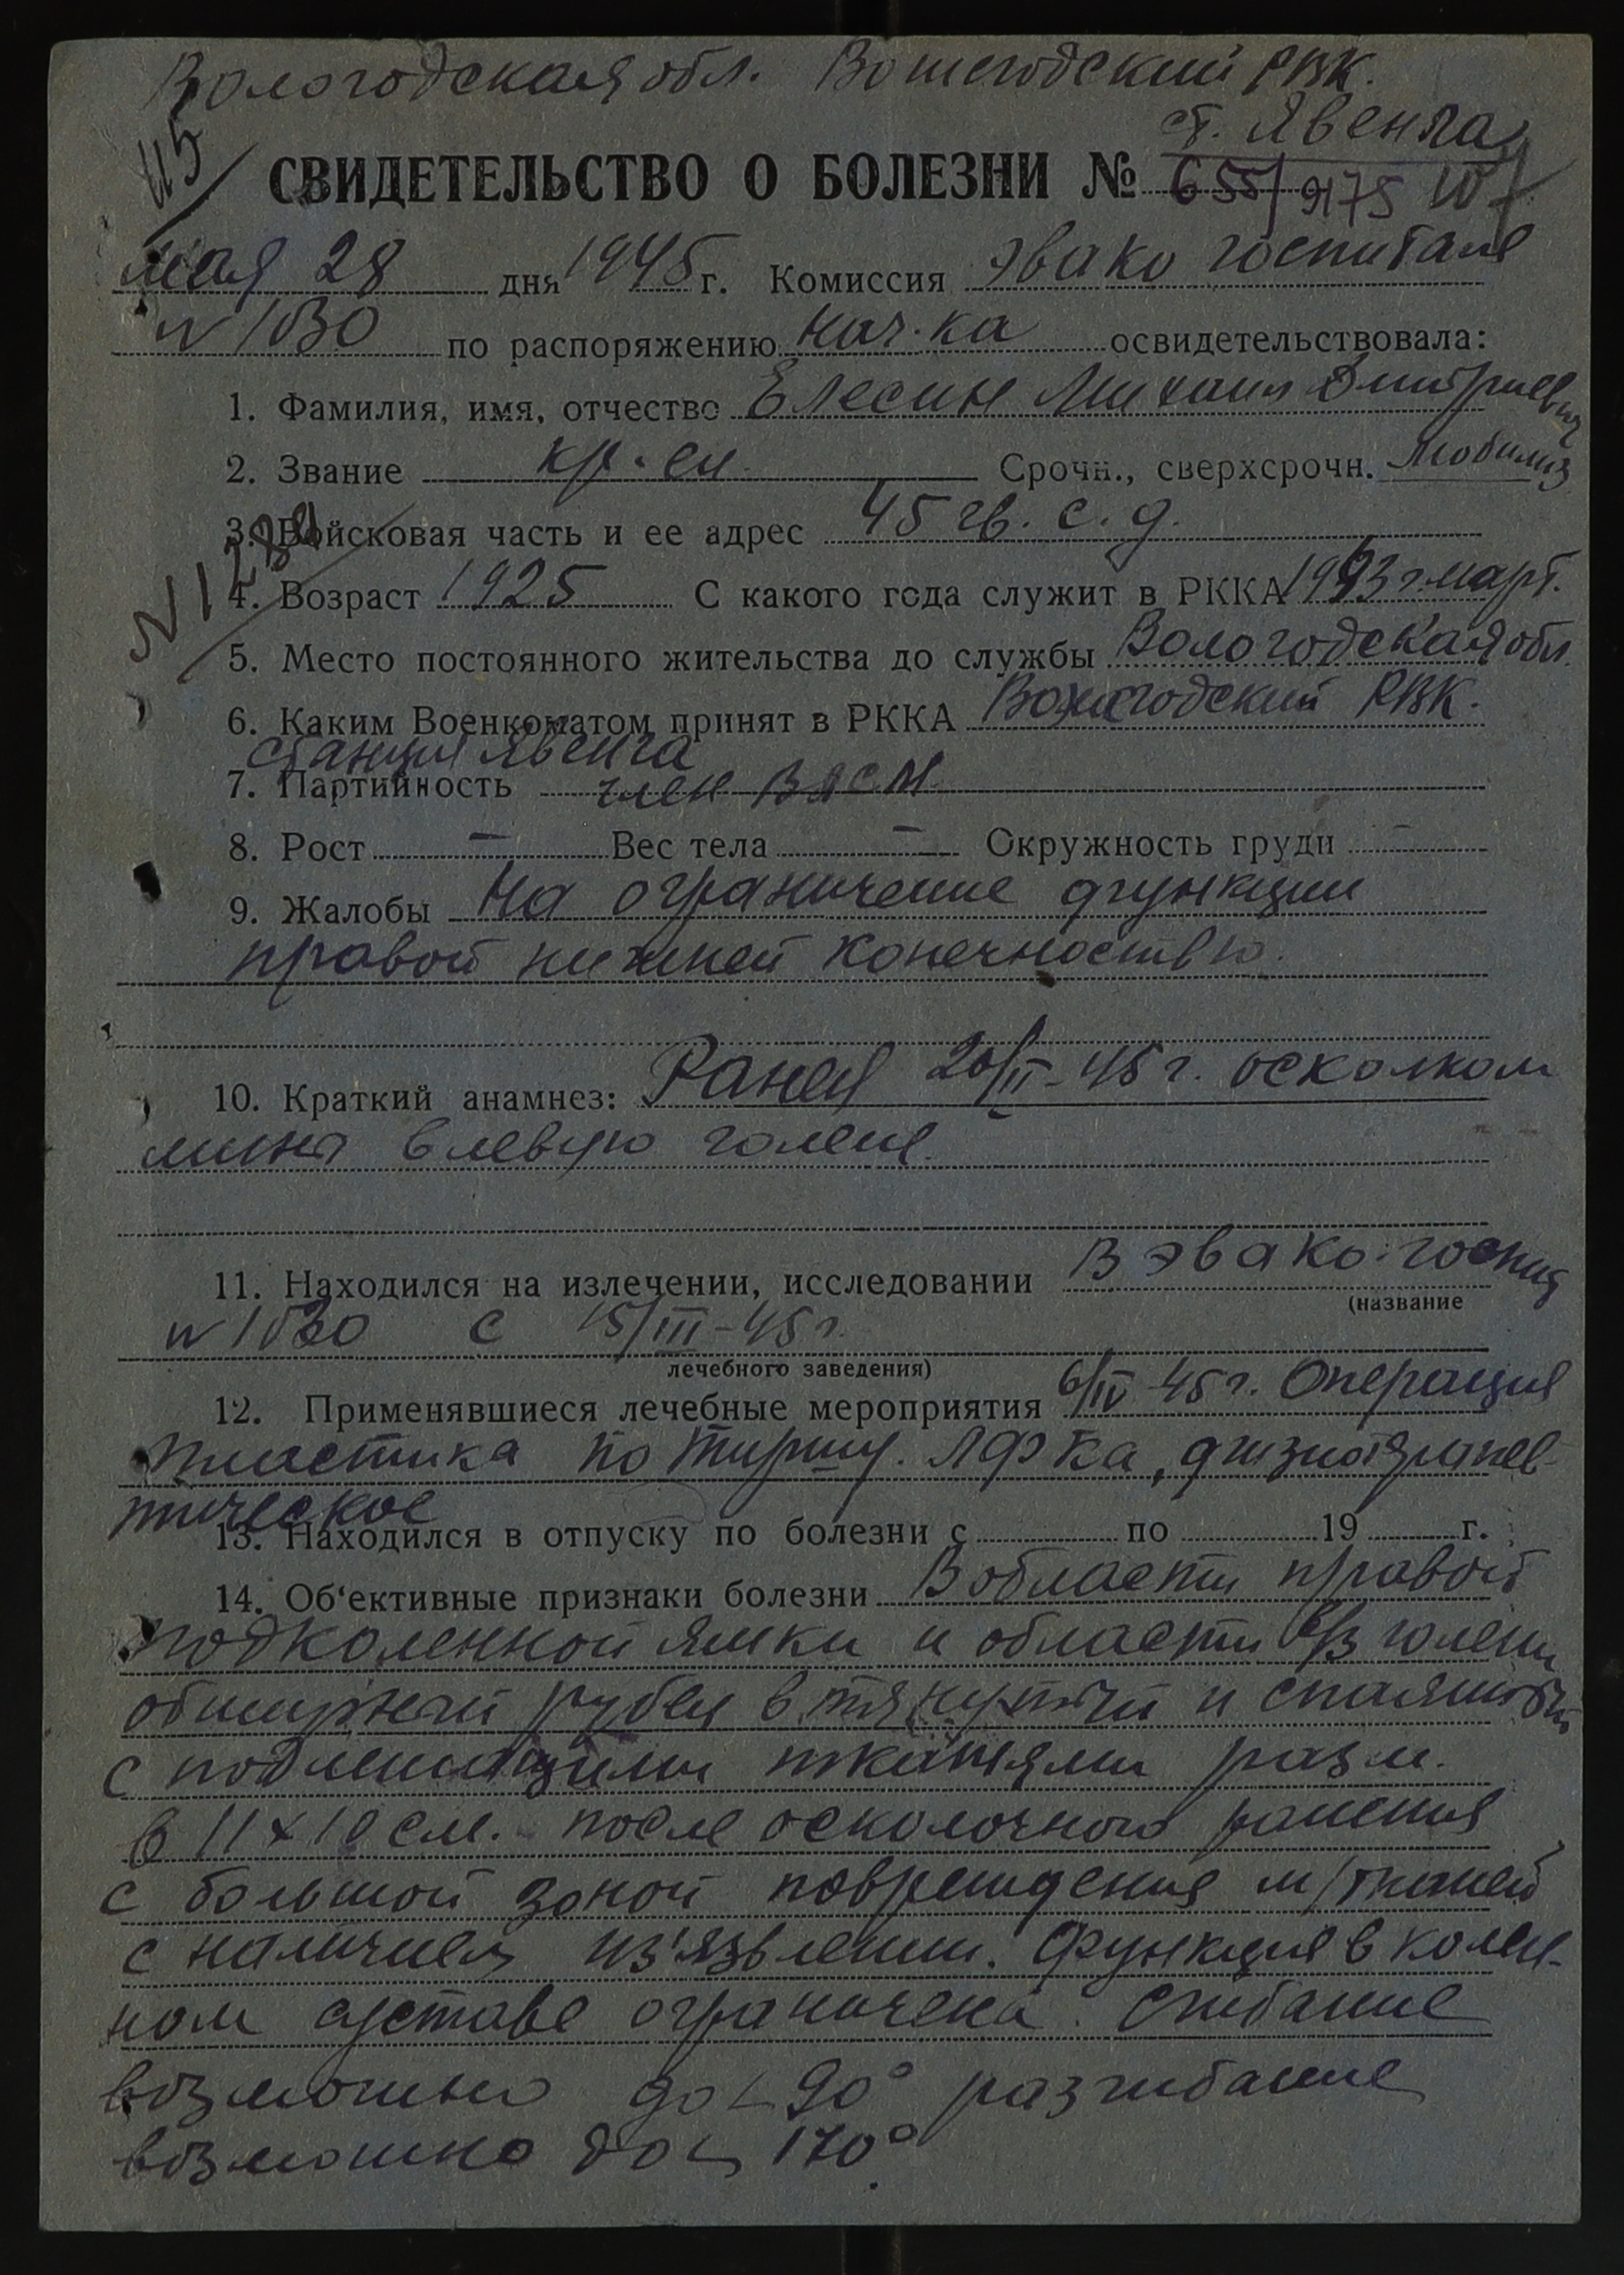 Вологодская обл. Вожегодский РВК.
ст. Явенга
115
СВИДЕТЕЛЬСТВО О БОЛЕЗНИ № 655/9175
мая 28 дня 1945 г. Комиссия эвако госпиталя
N 1030 по распоряжению нач-ка освидетельствовала:
1. Фамилия, имя, отчество Елесин Михаил Дмитриевич
2. Звание кр-ец Срочн., сверхсрочн. Мобилиз
3. Войсковая часть и ее адрес 45 гв. с. д.
4. Возраст 1925 С какого года служит в РККА 1943 г. март.
5. Место постоянного жительства до службы Вологодская обл.
6. Каким Военкоматом принят в РККА Вожегодский РВК.
станция Явенга
7. Партийность член ВЛСМ.
8. Рост — Вес тела — Окружность груди —
9. Жалобы На ограничение функции
правой нижней конечностью.
10. Краткий анамнез: Ранен 20/II-45 г. осколком
мины в левую голень.
11. Находился на излечении, исследовании В эвако-госпит
(название
N 1030 с 15/III-45 г.
лечебного заведения)
12. Применявшиеся лечебные мероприятия 6/IV-45 г. Операция
пластика по Тиршу. ЛФКа, физиотерапев-
тическое
13. Находился в отпуску по болезни с по 19 г.
14. Об‘ективные признаки болезни В области правой
подколенной ямки и области в/з голени
обширный рубец втянутый и спаянный
с подлежащими тканями разм.
в 11 х 10 см. после осколочного ранения
с большой зоной повреждения м/тканей
с наличием из'язвлении. Функция в колен-
ном суставе ограничена. Сгибание
возможно до ∟90° разгибание
возможно до ∟170°.